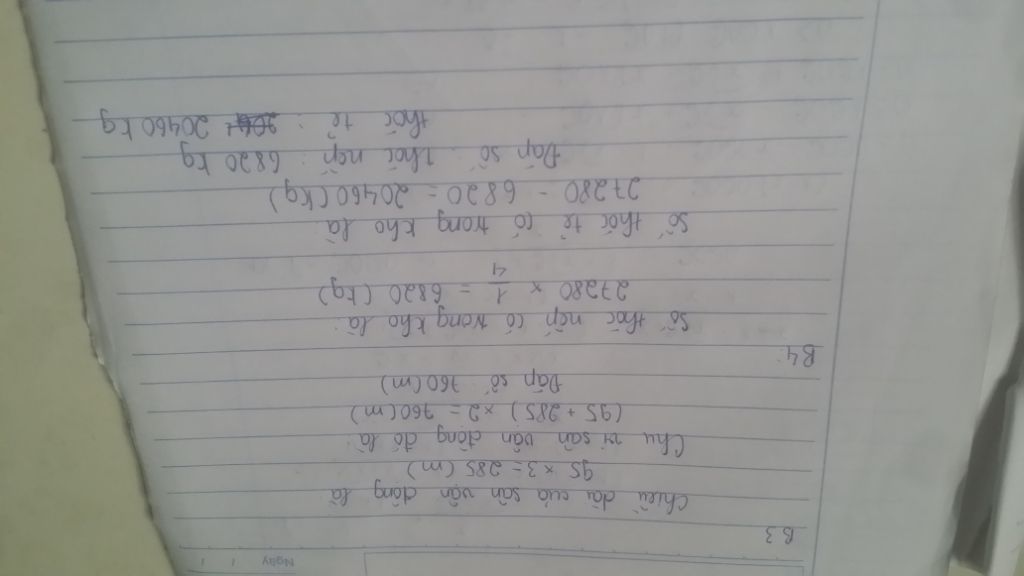 Ngày / /
B3
Chiều dài của sân vận động là
95 × 3 = 285 (m)
Chu vi sân vận động đó là:
(95 + 285) × 2 = 760 (m)
Đáp số 760 (m)
B4:
Số thóc nếp có trong kho là:
27280 × 1/4 = 6820 (kg)
Số thóc tẻ có trong kho là:
27280 - 6820 = 20460 (kg)
Đáp số: Thóc nếp: 6820 kg
thóc tẻ: 20460 kg